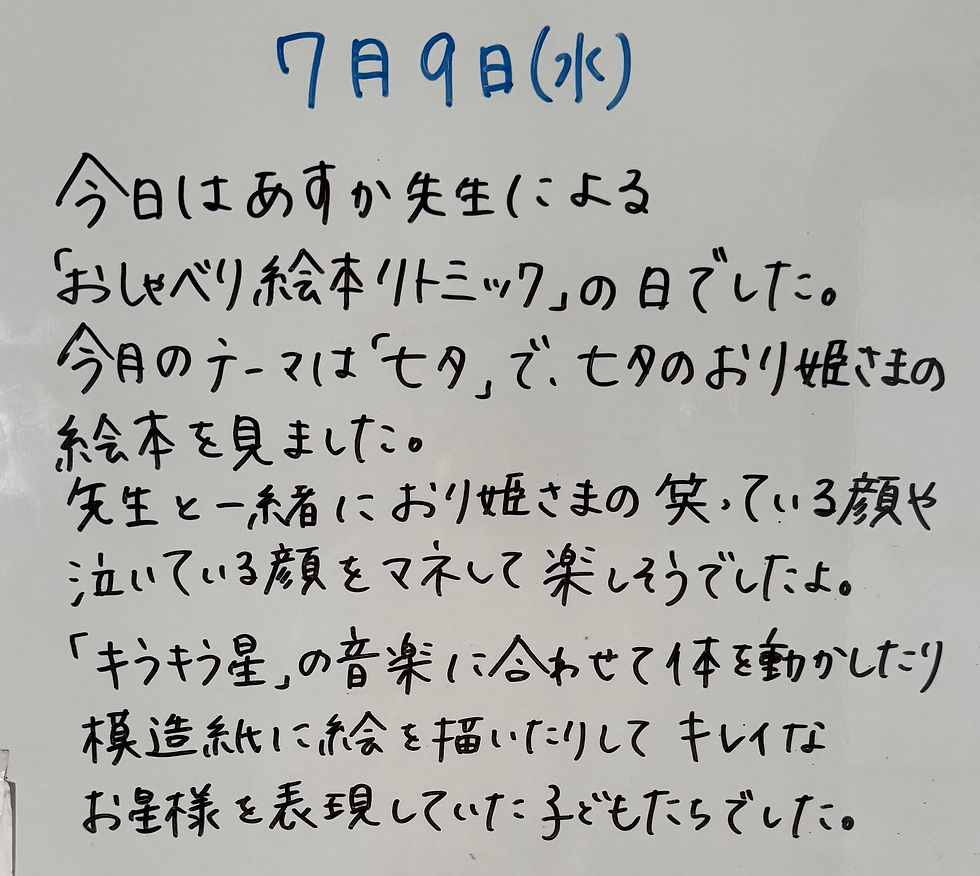 7月9日(水)
今日はあすか先生による
「おしゃべり絵本リトミック」の日でした。
今月のテーマは「七夕」で、七夕のおり姫さまの
絵本を見ました。
先生と一緒におり姫さまの笑っている顔や
泣いている顔をマネして楽しそうでしたよ。
「キラキラ星」の音楽に合わせて体を動かしたり
模造紙に絵を描いたりしてキレイな
お星様を表現していた子どもたちでした。